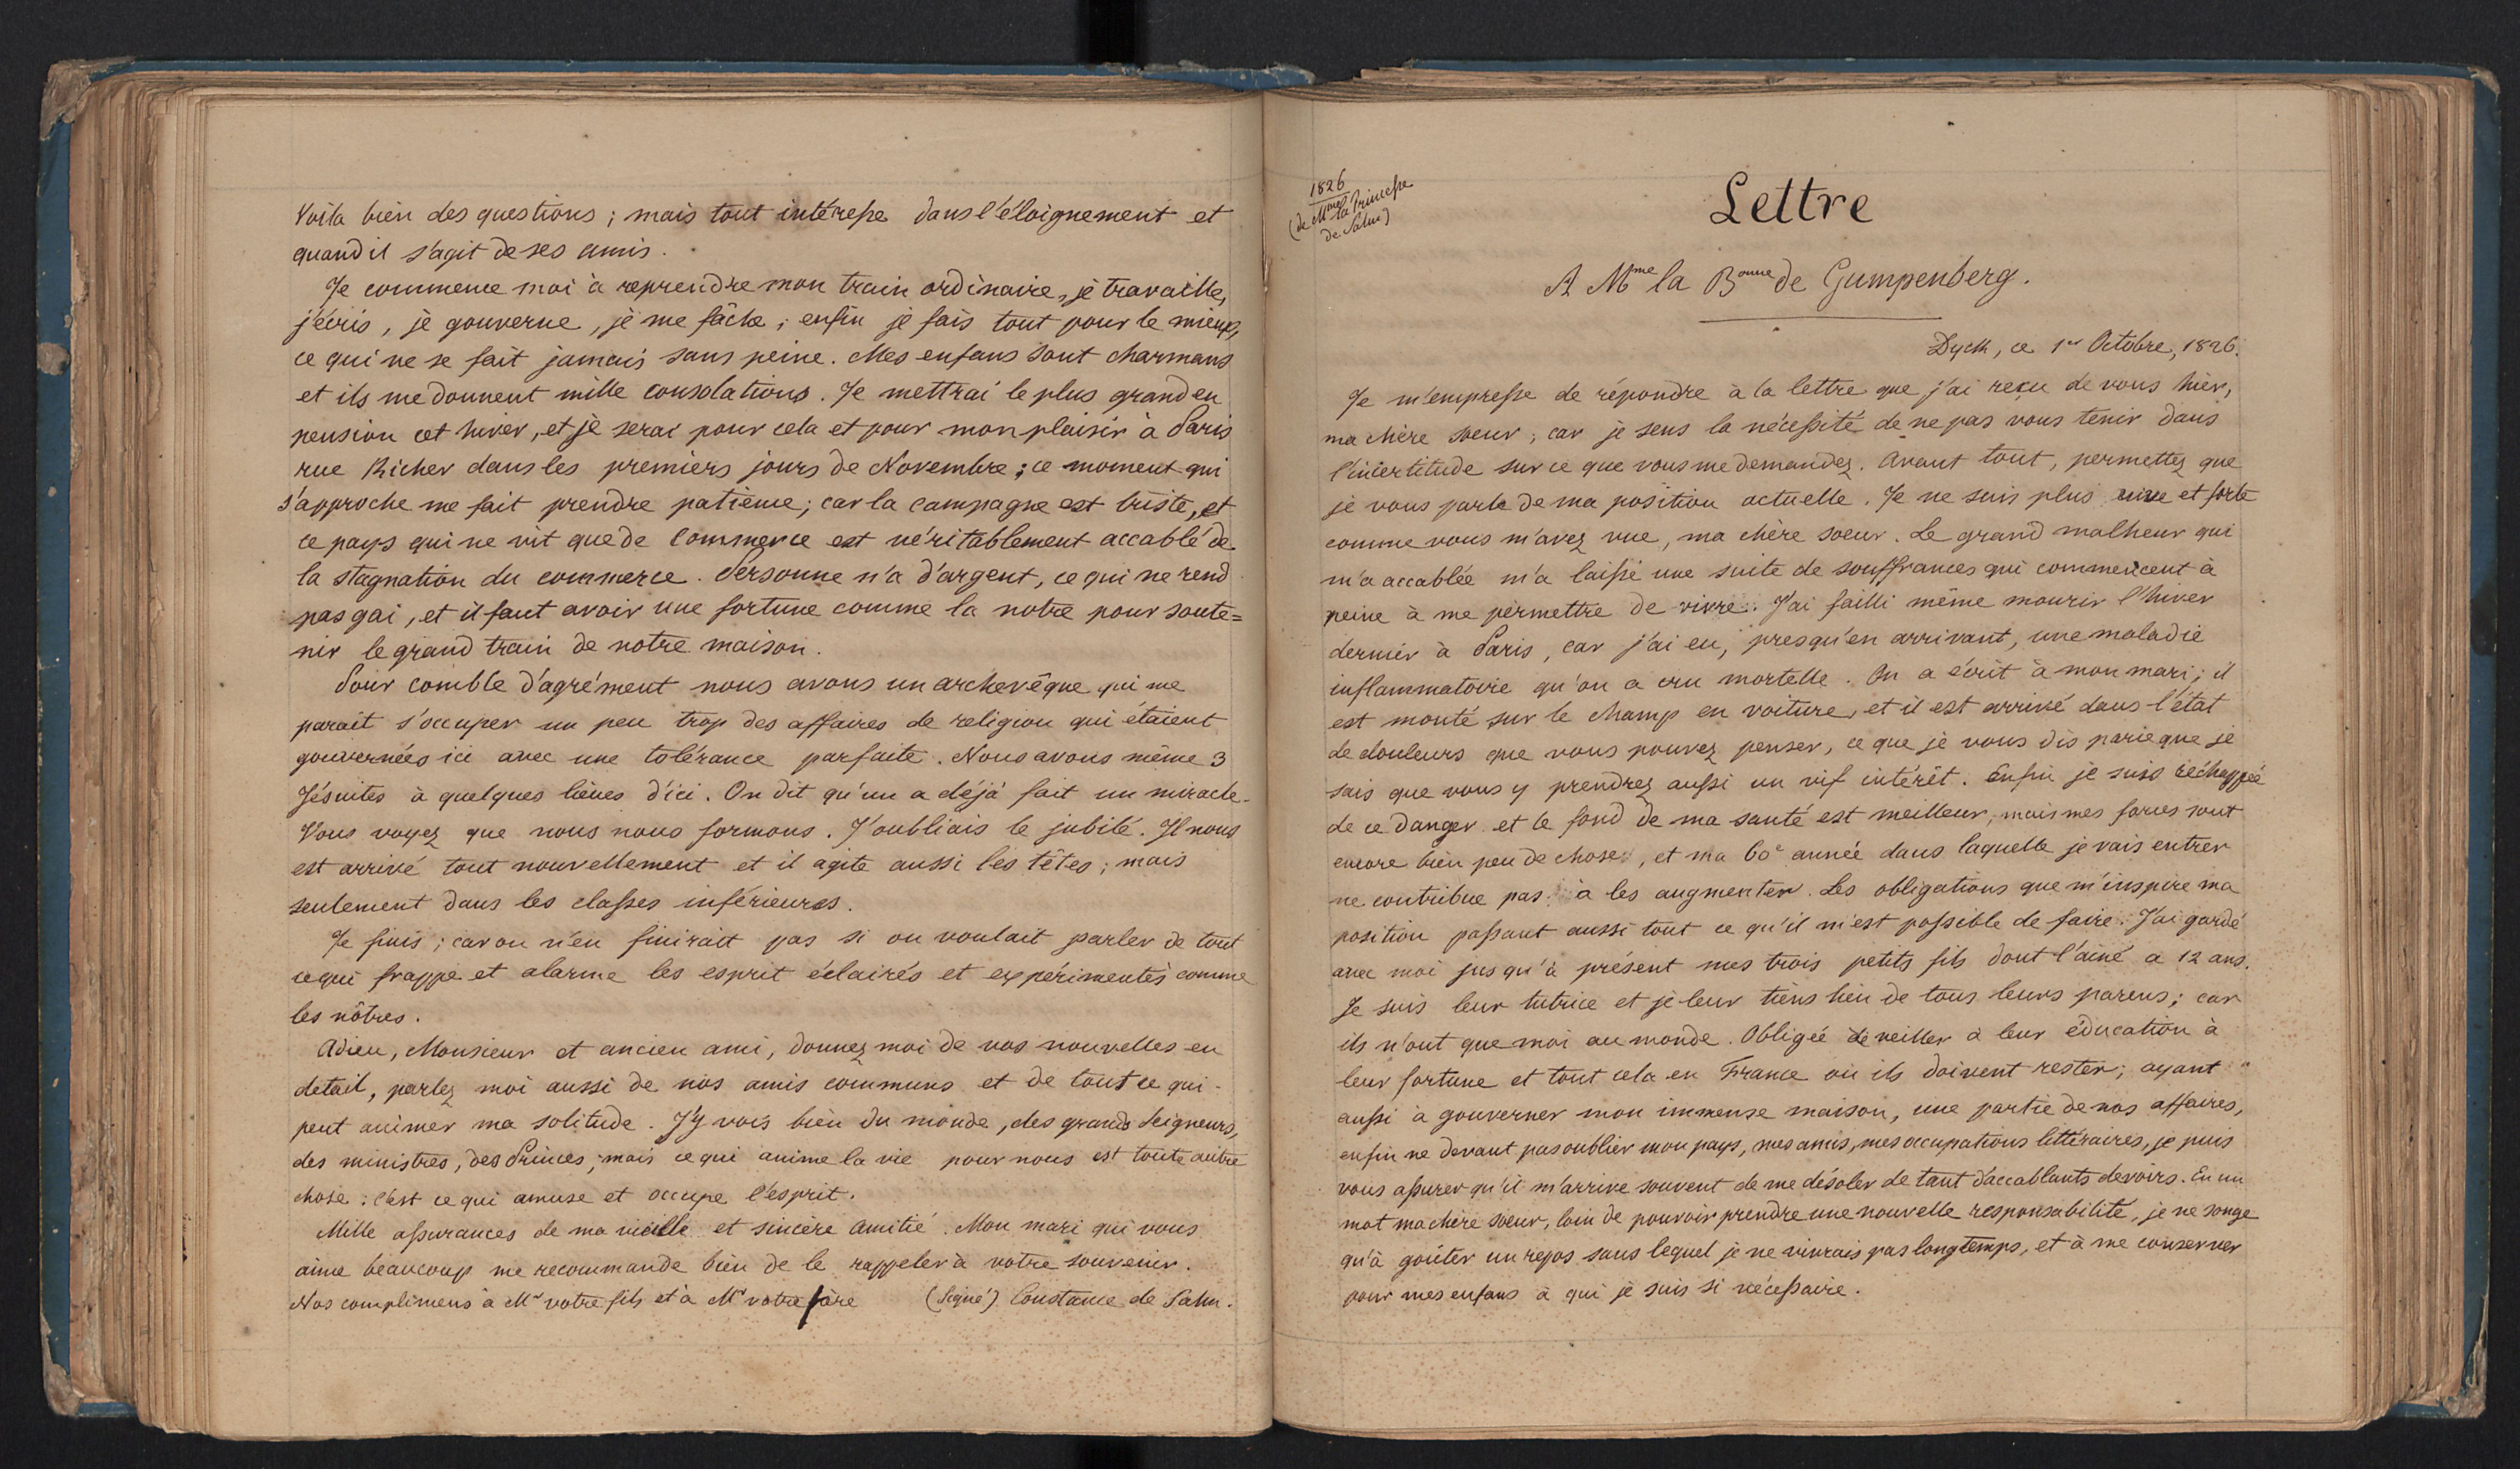 Voila bien des questions ; mais tout intéresse dans l'éloignement et
quand il s'agit de ses amis.
Je commence moi à reprendre mon train ordinaire, je travaille,
j'écris, je gouverne, je me fâche ; enfin je fais tout pour le mieux,
ce qui ne se fait jamais sans peine. Mes enfans sont charmans
et ils me donnent mille consolations. Je mettrai le plus grand en
pension cet hiver, et je serai pour cela et pour mon plaisir à Paris
rue Richer dans les premiers jours de Novembre ; ce moment qui
s'approche me fait prendre patience ; car la campagne est triste, et
ce pays qui ne vit que de Commerce est véritablement accablé de
la stagnation du commerce. Personne n'a d'argent, ce qui ne rend
pas gai, et il faut avoir une fortune comme la notre pour soute=
nir le grand train de notre maison.
Pour comble d'agrément nous avons un archevêque qui me
parait s'occuper un peu trop des affaires de religion qui étaient
gouvernées ici avec une tolérance parfaite. Nous avons même 3
Jésuites à quelques lieues d'ici. On dit qu'un a déjà fait un miracle.
Vous voyez que nous nous formons. J'oubliais le jubilé. Il nous
est arrivé tout nouvellement et il agite aussi les têtes ; mais
seulement dans les classes inférieures.
Je finis ; car on n'en finirait pas si on voulait parler de tout
ce qui frappe et alarme les esprit éclairés et expérimentés comme
les nôtres.
Adieu, Monsieur et ancien ami, donnez moi de vos nouvelles en
detail, parlez moi aussi de nos amis communs et de tout ce qui
peut animer ma solitude. J'y vois bien du monde, des grands Seigneurs,
des ministres, des Princes ; mais ce qui anime la vie pour nous est toute autre
chose : c'est ce qui amuse et occupe l'esprit.
Mille assurances de ma vieille et sincère amitié. Mon mari qui vous
aime beaucoup me recommande bien de le rappeler à votre souvenir.
Nos complimens à Mr votre fils et à Mr votre frère (Signé) Constance de Salm.
1826
(de Mme la Princesse
de Salm)
Lettre
A Mme la Bonne de Gumpenberg.
Dyck, ce 1er Octobre, 1826.
Je m'empresse de répondre à la lettre que j'ai reçu de vous hier,
ma chère soeur ; car je sens la nécessité de ne pas vous tenir dans
l'incertitude sur ce que vous me demandez. Avant tout, permettez que
je vous parle de ma position actuelle. Je ne suis plus vive et forte
comme vous m'avez vue, ma chère soeur. Le grand malheur qui
m'a accablée m'a laissé une suite de souffrances qui commencent à
peine à me permettre de vivre. J'ai failli même mourir l'hiver
dernier à Paris, car j'ai eu, presqu'en arrivant, une maladie
inflammatoire qu'on a cru mortelle. On a écrit à mon mari ; il
est monté sur le champ en voiture, et il est arrivé dans l'état
de douleurs que vous pouvez penser, ce que je vous dis parce que je
sais que vous y prendrez aussi un vif intérêt. Enfin je suis réchappée
de ce danger et le fond de ma santé est meilleur ; mais mes forces sont
encore bien peu de chose, et ma 60e année dans laquelle je vais entrer
ne contribue pas à les augmenter. Les obligations que m'inspire ma
position passant aussi tout ce qu'il m'est possible de faire. J'ai gardé
avec moi jusqu'à présent mes trois petits fils dont l'ainé a 12 ans.
Je suis leur tutrice et je leur tiens lieu de tous leurs parens ; car
ils n'ont que moi au monde. Obligée de veiller à leur éducation à
leur fortune et tout cela en France où ils doivent rester ; ayant
aussi à gouverner mon immense maison, une partie de nos affaires,
enfin ne devant pas oublier mon pays, mes amis, mes occupations littéraires, je puis
vous assurer qu'il m'arrive souvent de me désoler de tant d'accablants devoirs. En un
mot ma chère soeur, loin de pouvoir prendre une nouvelle responsabilité, je ne songe
qu'à goûter un repos sans lequel je ne vivrais pas longtemps, et à me conserver
pour mes enfans à qui je suis si nécessaire.